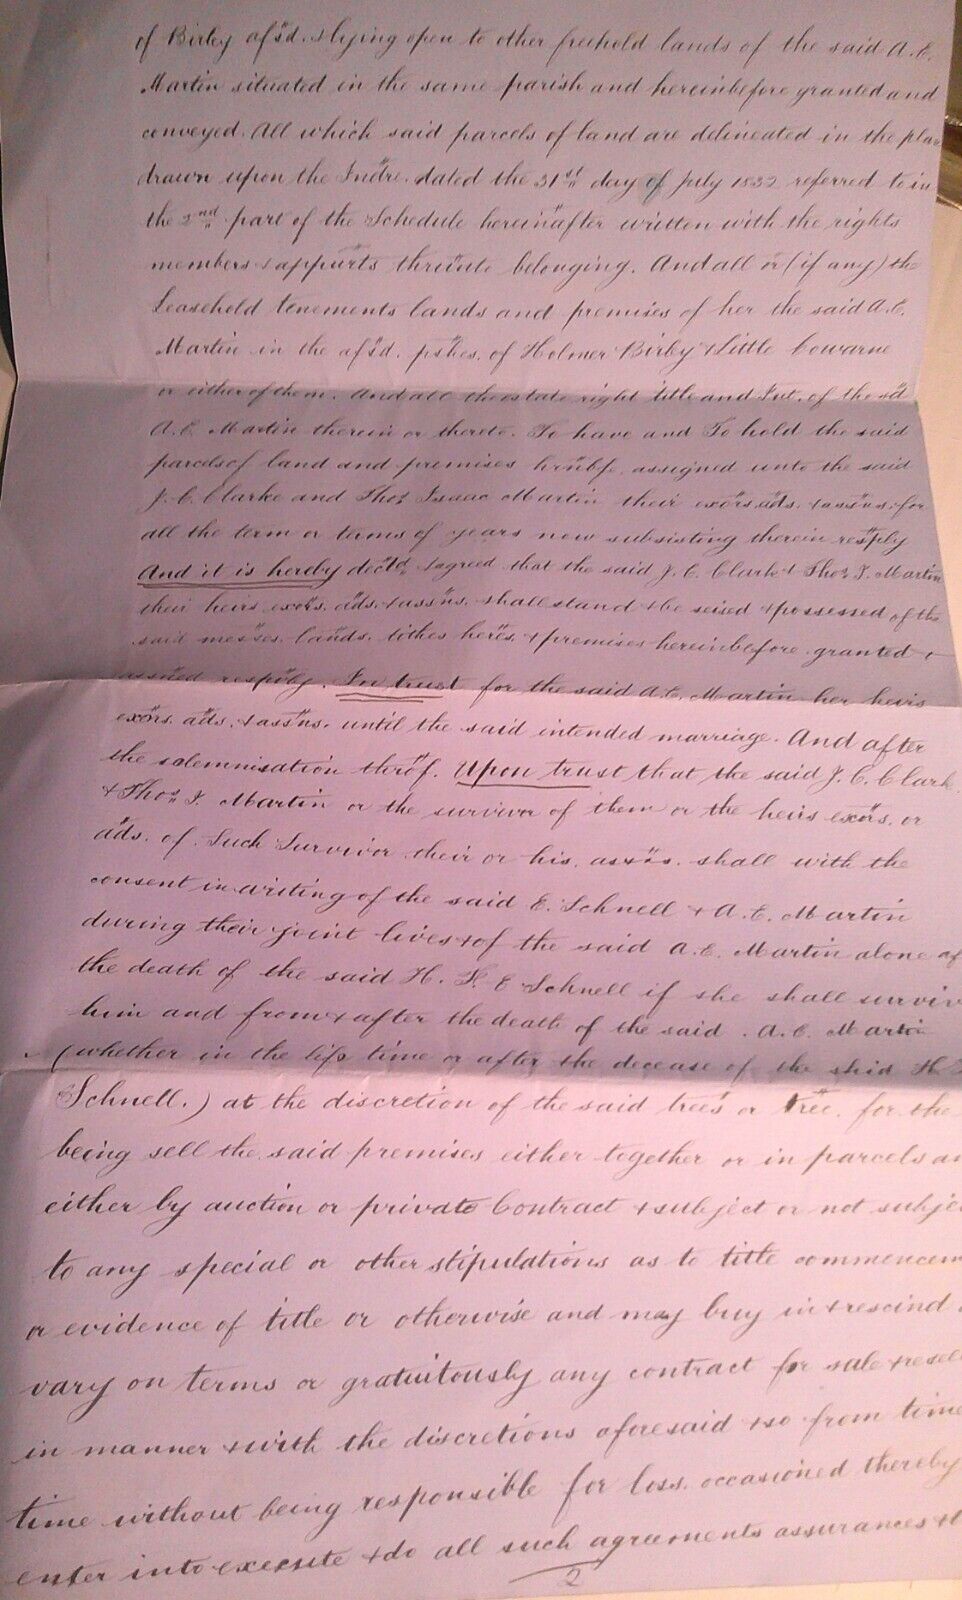 of Birley afsd. & lying open to other freehold lands of the said A. E.
Martin situated in the same parish and hereinbefore granted and
conveyed. All which said parcels of land are delineated in the plan
drawn upon the Indre. dated the 31st day of July 1832 referred to in
the 2nd part of the Schedule hereinafter written with the rights
members & appurts thrunto belonging. And all or (if any) the
Leasehold tenements lands and premises of her the said A. E.
Martin in the afsd. pshes. of Holmer Birley & Little Cowarne
or either of them. And all the estate right title and Int. of the sd
A. E. Martin therein or thereto. To have and To hold the said
parcels of land and premises hrnbfe assigned unto the said
J. C. Clarke and Thos Isaac Martin their exors ads. & assns. for
all the term or terms of years now subsisting therein resply
And it is hereby decld & agreed that the said J. C. Clark & Thos I. Martin
their heirs exors. ads. & assns. shall stand & be seised & possessed of the
said messes. lands. tithes heres. & premises hereinbefore granted &
assned resply. In trust for the said A. E. Martin her heirs
exors. ads. & assns. until the said intended marriage. And after
the solemnisation throf. Upon trust that the said J. C. Clark
& Thos I. Martin or the survivor of them or the heirs exors. or
ads. of Such Survivor their or his assns. shall with the
consent in writing of the said E. Schnell & A. E. Martin
during their joint lives & of the said A. E. Martin alone af
the death of the said H. F. E Schnell if she shall surviv
him and from & after the death of the said. A. E. Martin
(whether in the life time or after the decease of the said H
Schnell.) at the discretion of the said trees or tree. for the
being sell the said premises either together or in parcels an
either by auction or private Contract & subject or not subje
to any special or other stipulations as to title commencem
or evidence of title or otherwise and may buy in & rescind
vary on terms or gratuitously any contract for sale & resell
in manner & with the discretions aforesaid & so from time
time without being responsible for loss. occasioned thereby
enter into execute & do all such agreements assurances &
2